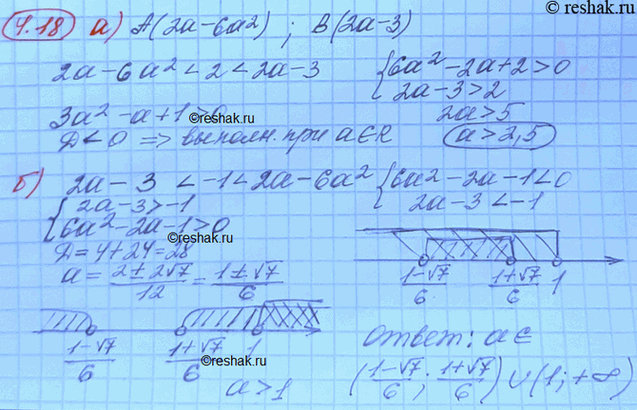 ©reshak.ru
4.18 а) A(2a-6a²) ; B(2a-3)
2a-6a² < 2 < 2a-3 { 6a² -2a+2>0
2a-3>2
3a² -a+1>0 2a>5
D<0 => выполн. при a∈R a>2,5
б) 2a-3 < -1 < 2a-6a² { 6a²-2a-1<0
2a-3<-1
{ 2a-3>-1
6a²-2a-1>0
©reshak.ru
D=4+24=28
a= (2±2√7)/12 = (1±√7)/6
(1-√7)/6 (1+√7)/6 1
(1-√7)/6 (1+√7)/6 1
©reshak.ru
a>1
ответ: a∈
((1-√7)/6; (1+√7)/6) ∪ (1; +∞)